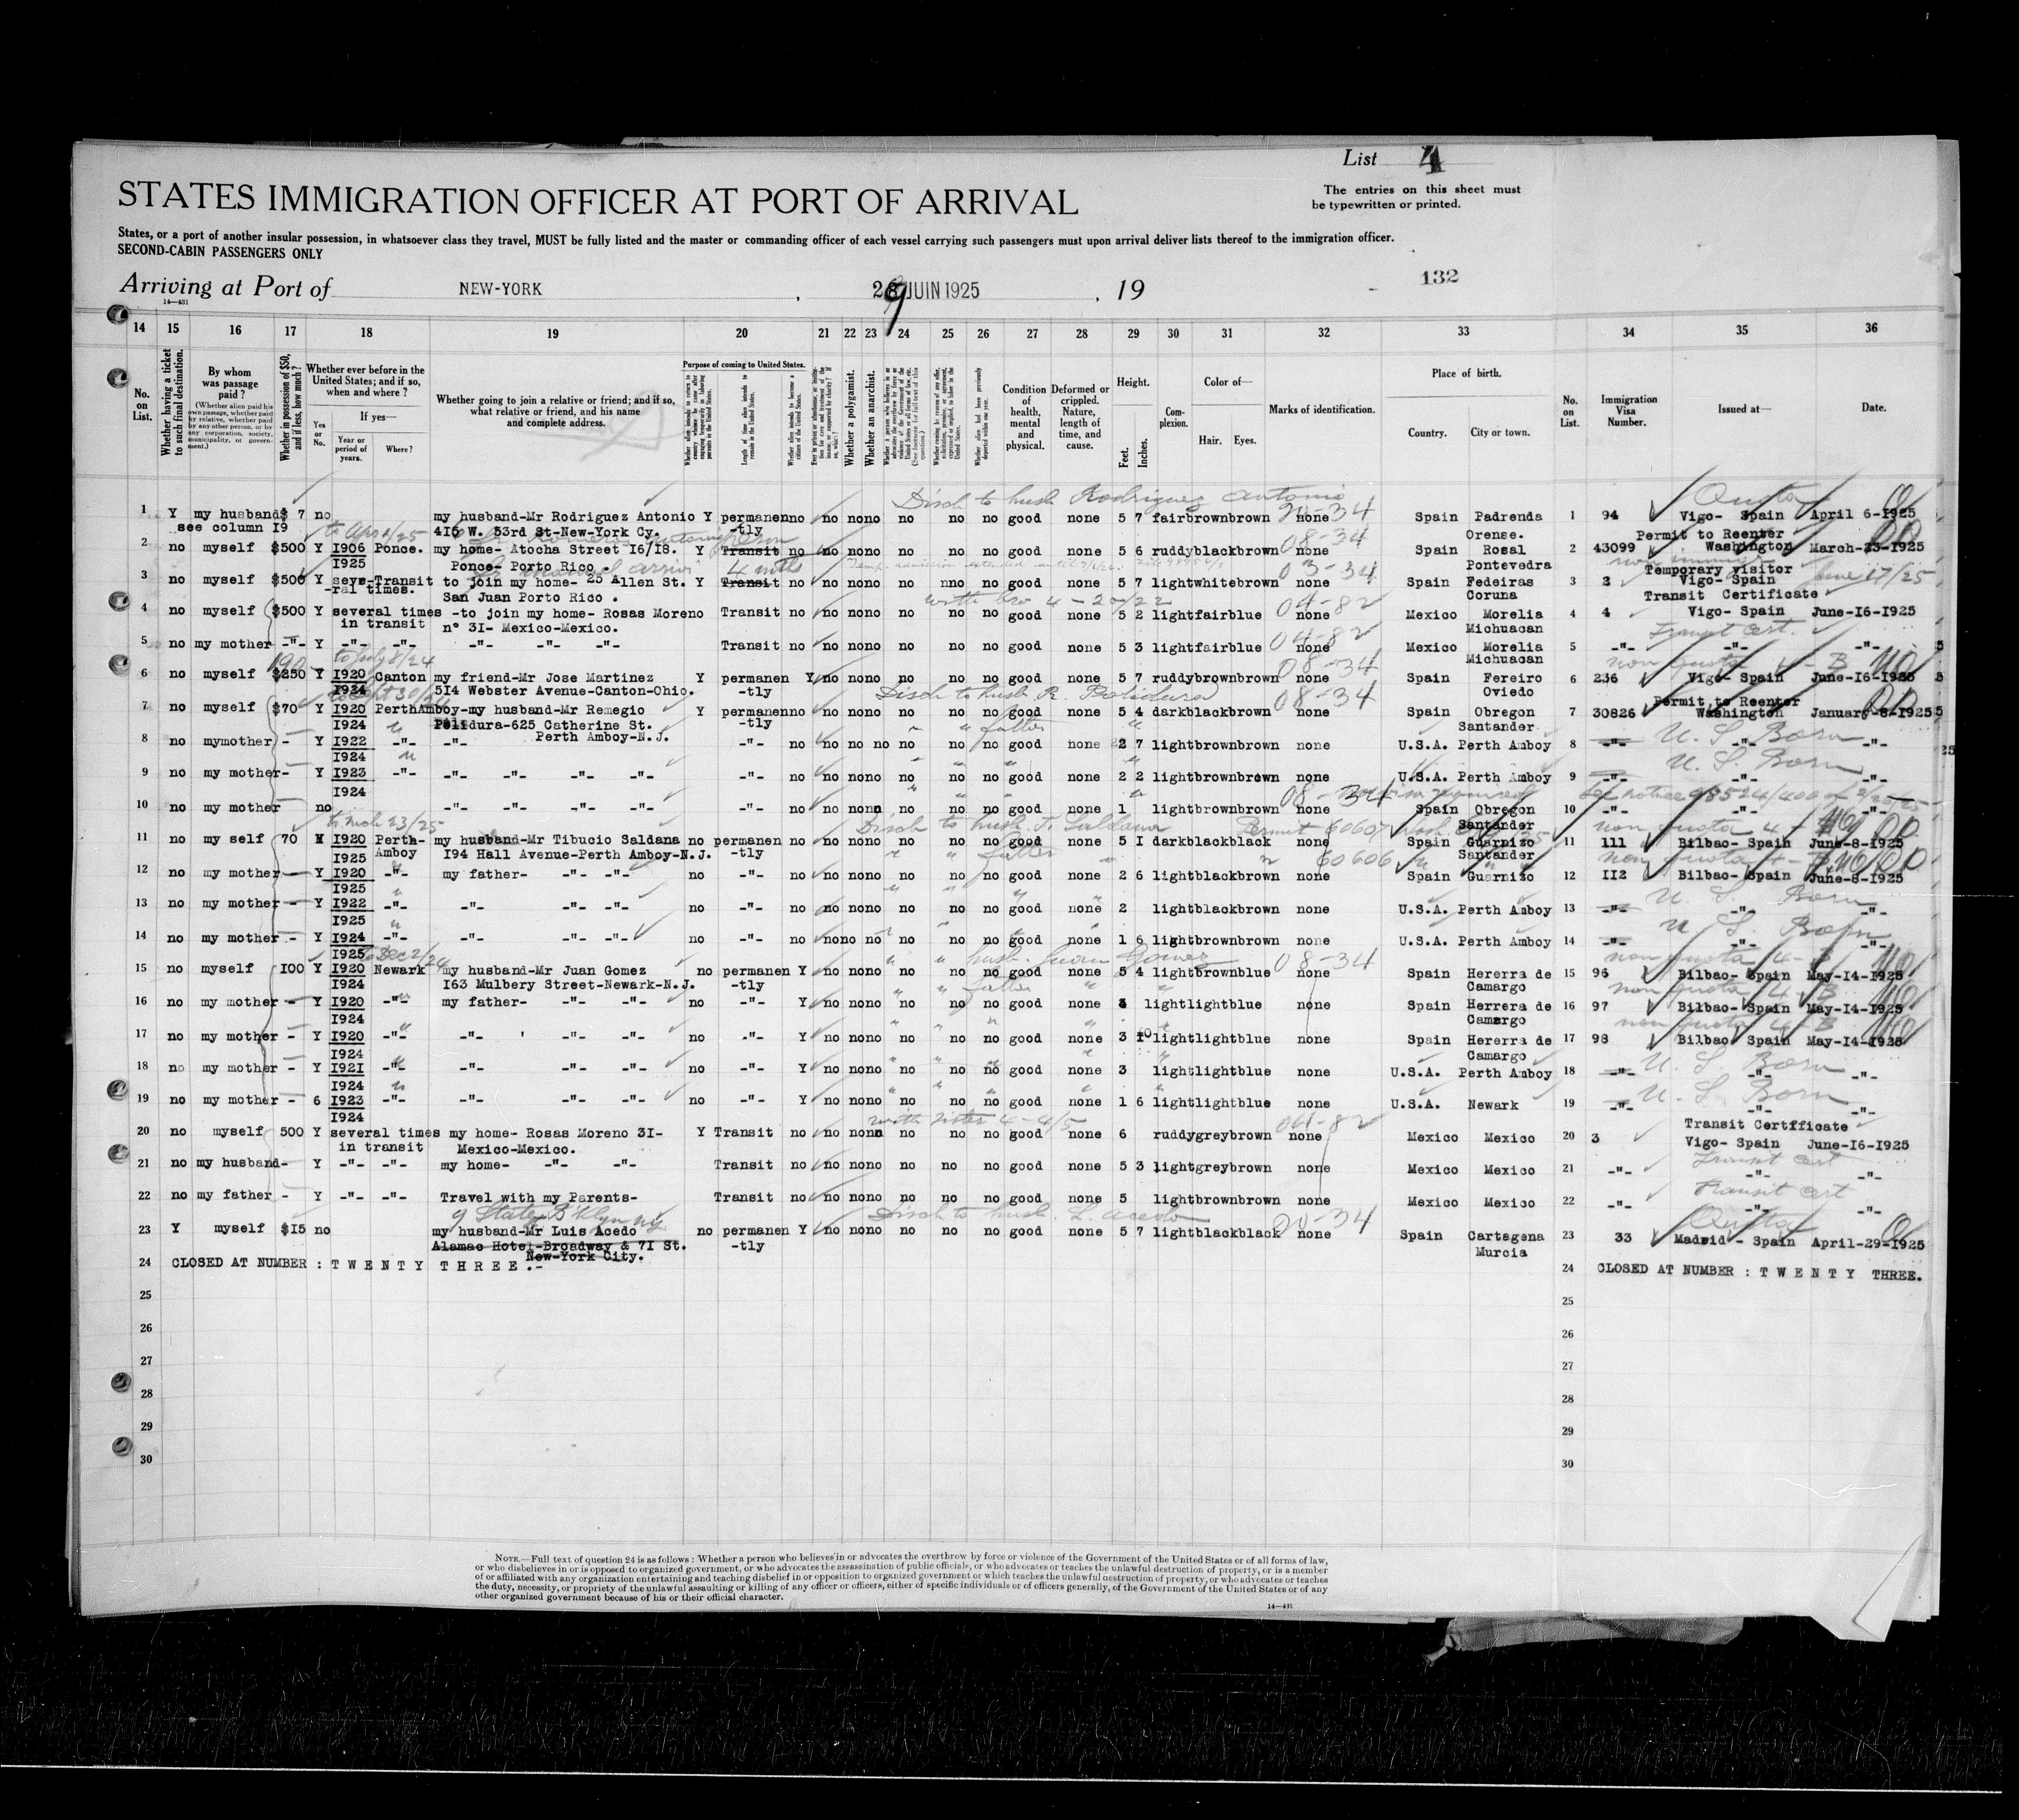 List 4
STATES IMMIGRATION OFFICER AT PORT OF ARRIVAL
The entries on this sheet must
be typewritten or printed.
States, or a port of another insular possession, in whatsoever class they travel, MUST be fully listed and the master or commanding officer of each vessel carrying such passengers must upon arrival deliver lists thereof to the immigration officer.
SECOND-CABIN PASSENGERS ONLY
132
Arriving at Port of NEW-YORK , 29 JUIN 1925 , 19
14—431
14 15 16 17 18 19 20 21 22 23 24 25 26 27 28 29 30 31 32 33 34 35 36
No. on List.
Whether having a ticket to such final destination.
By whom was passage paid ?
(Whether alien paid his own passage, whether paid by relative, whether paid by any other person, or by any corporation, society, municipality, or government.)
Whether in possession of $50, and if less, how much ?
Whether ever before in the United States; and if so, when and where ?
If yes—
Yes or No.
Year or period of years.
Where?
Whether going to join a relative or friend; and if so, what relative or friend, and his name and complete address.
Purpose of coming to United States.
Length of time alien intends to remain in the United States.
Whether alien intends to become a citizen of the United States.
Whether a polygamist.
Whether an anarchist.
Condition of health, mental and physical.
Deformed or crippled. Nature, length of time, and cause.
Height.
Feet.
Inches.
Complexion.
Color of—
Hair. Eyes.
Marks of identification.
Place of birth.
Country. City or town.
No. on List.
Immigration Visa Number.
Issued at—
Date.
Disch to husb Rodriguez Antonio Quota
1 Y my husband $ 7 no my husband-Mr Rodriguez Antonio Y permanen no no no no no no no good none 5 7 fair brown brown none Spain Padrenda 1 94 Vigo- Spain April 6-I925
see column I9 4I5 W. 53rd St-New-York Cy. -tly Orense. Permit to Reenter
2 no myself $500 Y I906 Ponce. my home- Atocha Street I6/I8. Y Transit no no no no no no no good none 5 6 ruddy black brown none Spain Rosal 2 43099 Washington March-23-I925
I925 Ponce- Porto Rico . 4 mths Pontevedra Temporary visitor
3 no myself $500 Y seve-Transit to join my home- 25 Allen St. Y Transit no no no no no nno no good none 5 7 light white brown none Spain Fedeiras 3 2 Vigo- Spain June 17/25
-ral times. San Juan Porto Rico . Coruna Transit Certificate
4 no myself $500 Y several times -to join my home- Rosas Moreno Transit no no no no no no no good none 5 2 light fair blue none Mexico Morelia 4 4 Vigo- Spain June-I6-I925
in transit n° 3I- Mexico-Mexico. Michuacan Transit Cert.
5 no my mother -"- Y -"- -"- -"- -"- -"- Transit no no no no no no no good none 5 3 light fair blue none Mexico Morelia 5 -"- -"- -"-
to July 8/24 Michuacan
6 no myself $250 Y I920 Canton my friend-Mr Jose Martinez Y permanen Y no no no no no no good none 5 7 ruddy brown brown none Spain Fereiro 6 236 Vigo- Spain June-I6-I925
I924 5I4 Webster Avenue-Canton-Ohio. -tly Disch to husb R. Polidura Oviedo Permit to Reenter
7 no myself $70 Y I920 PerthAmboy-my husband-Mr Remegio Y permanen no no no no no no no good none 5 4 dark black brown none Spain Obregon 7 30826 Washington January-8-I925
I924 Polidura-625 Catherine St. -tly Santander
Perth Amboy-N.J. U. S. Born
8 no mymother - Y I922 -"- -"- -"- no no no no no no no good none 2 7 light brown brown none U.S.A. Perth Amboy 8 -"- -"- -"-
I924 U. S. Born
9 no my mother- Y I923 -"- -"- -"- -"- -"- -"- no no no no no no no good none 2 2 light brown brown none U.S.A. Perth Amboy 9 -"- -"- -"-
I924
10 no my mother no -"- -"- -"- -"- -"- no no no no no no no good none 1 light brown brown none Spain Obregon 10 -"- -"- -"-
to Mch 23/25 Disch to husb. T. Saldana Santander
11 no my self 70 Y I920 Perth- my husband-Mr Tibucio Saldana no permanen no no no no no no no good none 5 I dark black black none Spain Guarnizo 11 111 Bilbao- Spain June-8-I925
I925 Amboy I94 Hall Avenue-Perth Amboy-N.J. -tly 60606 Santander
12 no my mother - Y I920 -"- my father- -"- -"- no -"- no no no no no no no good none 2 6 light black brown none Spain Guarnizo 12 II2 Bilbao- Spain June-8-I925
I925 U. S. Born
13 no my mother - Y I922 -"- -"- -"- -"- no -"- no no no no no no no good none 2 light black brown none U.S.A. Perth Amboy 13 -"- -"- -"-
I925 U. S. Born
14 no my mother - Y I924 -"- -"- -"- -"- no -"- no no no no no no no good none 1 6 light brown brown none U.S.A. Perth Amboy 14 -"- -"- -"-
I925 to Dec 2/24 husb. Juan Gomez
15 no myself I00 Y I920 Newark my husband-Mr Juan Gomez no permanen Y no no no no no no good none 5 4 light brown blue none Spain Hererra de 15 96 Bilbao- Spain May-I4-I925
I924 I63 Mulbery Street-Newark-N.J. -tly father Camargo
16 no my mother - Y I920 -"- my father- -"- -"- no -"- Y no no no no no no good none light light blue none Spain Herrera de 16 97 Bilbao- Spain May-I4-I925
I924 Camargo
17 no my mother - Y I920 -"- -"- ' -"- -"- no -"- Y no no no no no no good none 3 10 light light blue none Spain Hererra de 17 98 Bilbao- Spain May-I4-I925
I924 Camargo U. S. Born
18 no my mother - Y I92I -"- -"- -"- -"- no -"- Y no no no no no no good none 3 light light blue none U.S.A. Perth Amboy 18 -"- -"- -"-
I924 U. S. Born
19 no my mother - 6 I923 -"- -"- -"- -"- no -"- Y no no no no no no good none 1 6 light light blue none U.S.A. Newark 19 -"- -"- -"-
I924 with sister 4-4/5 Transit Certfficate
20 no myself 500 Y several times my home- Rosas Moreno 3I- Y Transit no no no no no no no good none 6 ruddy grey brown none Mexico Mexico 20 3 Vigo- Spain June-I6-I925
in transit Mexico-Mexico. Transit Cert
21 no my husband- Y -"- -"- my home- -"- -"- Transit no no no no no no no good none 5 3 light grey brown none Mexico Mexico 21 -"- -"- -"-
Transit Cert
22 no my father - Y -"- -"- Travel with my Parents- Transit no no no no no no no good none 5 light brown brown none Mexico Mexico 22 -"- -"- -"-
Disch to husb. L. Acedo Quota
23 Y myself $I5 no my husband-Mr Luis Acedo no permanen Y no no no no no no good none 5 7 light black black none Spain Cartagena 23 33 Madrid - Spain April-29-I925
Alamac Hotel-Broadway & 7I St. -tly Murcia
New-York City.
24 CLOSED AT NUMBER : T W E N T Y T H R E E .- 24 CLOSED AT NUMBER : T W E N T Y THREE.
25 25
26 26
27 27
28 28
29 29
30 30
NOTE.—Full text of question 24 is as follows : Whether a person who believes in or advocates the overthrow by force or violence of the Government of the United States or of all forms of law,
or who disbelieves in or is opposed to organized government, or who advocates the assassination of public officials, or who advocates or teaches the unlawful destruction of property, or is a member
of or affiliated with any organization entertaining and teaching disbelief in or opposition to organized government or which teaches the unlawful destruction of property, or who advocates or teaches
the duty, necessity, or propriety of the unlawful assaulting or killing of any officer or officers, either of specific individuals or of officers generally, of the Government of the United States or of any
other organized government because of his or their official character.
14—431